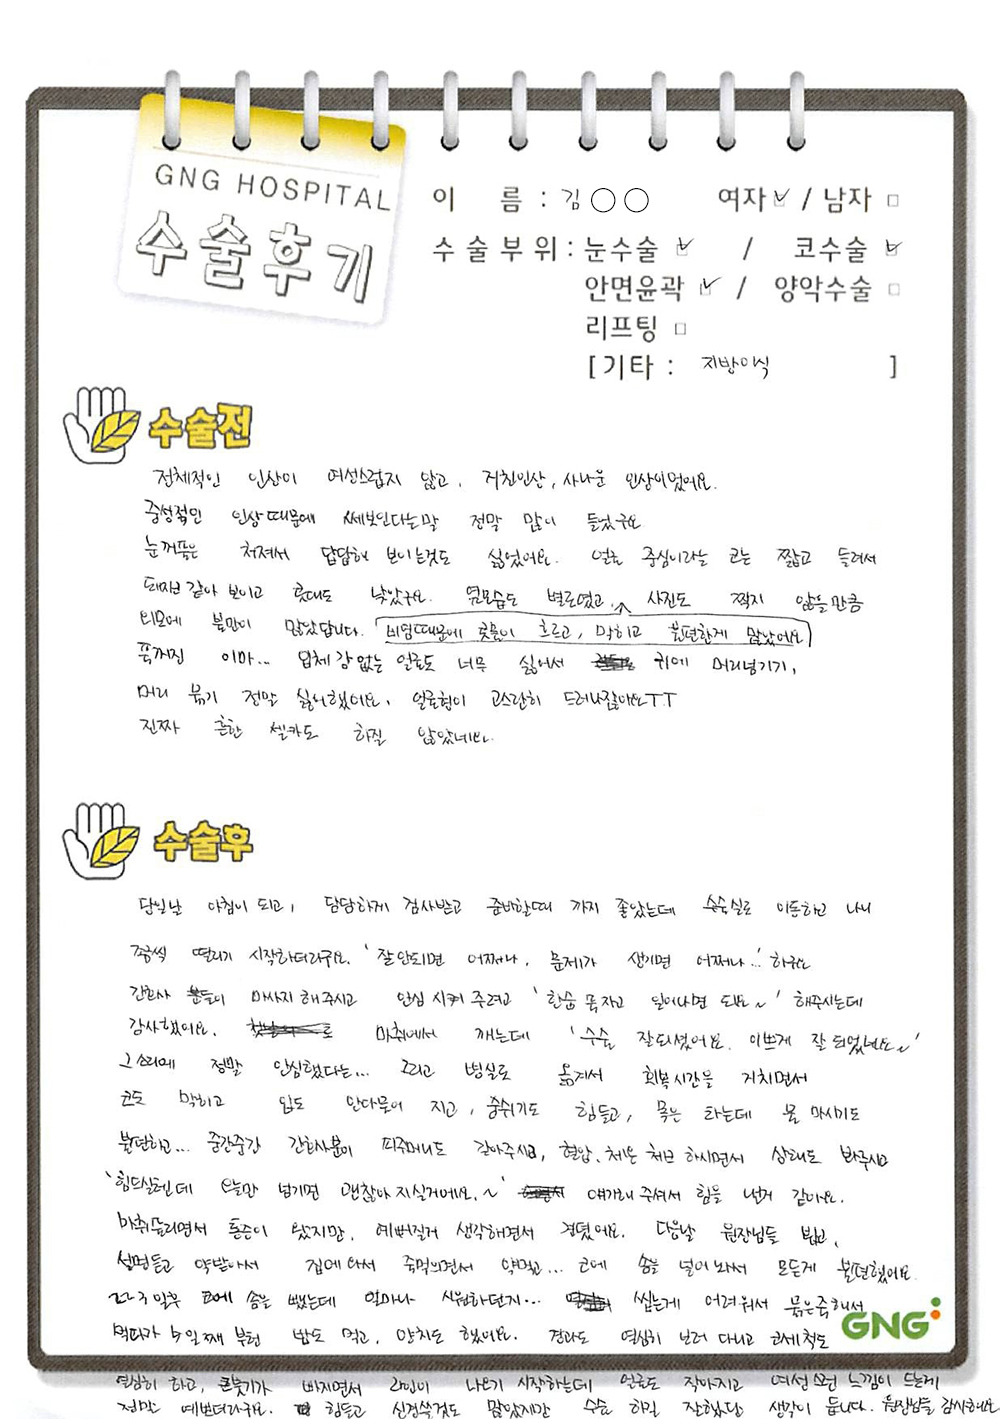 GNG HOSPITAL
수술후기
이 름 : 김○○ 여자☑ / 남자□
수술부위 : 눈수술 ☑ / 코수술 ☑
안면윤곽 ☑ / 양악수술 □
리프팅 □
[기타 : 지방이식 ]
수술전
전체적인 인상이 여성스럽지 않고, 거친인상, 사나운 인상이었어요.
중성적인 인상때문에 쎄보인다는말 정말 많이 들었구요
눈꺼풀은 처져서 답답해 보이는것도 싫었어요. 얼굴 중심이라는 코는 짧고 들려서
돼지코 같아 보이고 콧대도 낮았구요. 옆모습도 별로였고, 사진도 찍지 않을만큼
외모에 불만이 많았답니다. 비염때문에 콧물이 흐르고, 막히고 불편한게 많았어요
푹꺼진 이마... 입체감 없는 얼굴도 너무 싫어서 귀에 머리넘기기,
머리 묶기 정말 싫어했어요. 얼굴형이 고스란히 드러나잖아요T.T
진짜 흔한 셀카도 하질 않았네요.
수술후
당일날 아침이 되고, 담담하게 검사받고 준비할때 까지 좋았는데 수술실로 이동하고 나니
조금씩 떨리기 시작하더라구요. '잘안되면 어쩌나, 문제가 생기면 어쩌나...' 하구요
간호사 분들이 마사지 해주시고 안심 시켜 주려고 '한숨 푹자고 일어나면 되요~' 해주시는데
감사했어요. 마취에서 깨는데 '수술 잘되셨어요. 이쁘게 잘 되었네요~'
그소리에 정말 안심했다는... 그리고 병실로 옮겨서 회복시간을 거치면서
코도 막히고 입도 안다물어 지고, 숨쉬기도 힘들고, 목은 타는데 물 마시기도
불편하고... 중간중간 간호사분이 피주머니도 갈아주시고, 혈압, 체온 체크 하시면서 상태도 봐주시고
'힘드실텐데 오늘만 넘기면 괜찮아지실거에요.~' 얘기해 주셔서 힘을 낸거 같아요.
마취풀리면서 통증이 왔지만, 예뻐질거 생각하면서 견뎠어요. 다음날 원장님들 뵙고,
설명듣고 약받아서 집에 와서 죽먹으면서 약먹고... 코에 솜을 넣어 놔서 모든게 불편했어요
코에 솜을 뺐는데 얼마나 시원하던지... 씹는게 어려워서 묽은죽해서
먹다가 4일째 부턴 밥도 먹고, 양치도 했어요. 경과도 열심히 보러 다니고 코세척도
열심히 하고, 큰붓기가 빠지면서 라인이 나오기 시작하는데 얼굴도 작아지고 여성스런 느낌이 드는게
정말 예쁘더라구요. 힘들고 신경쓸것도 많았지만 수술 하길 잘했단 생각이 듭니다. 원장님들 감사해요
GNG